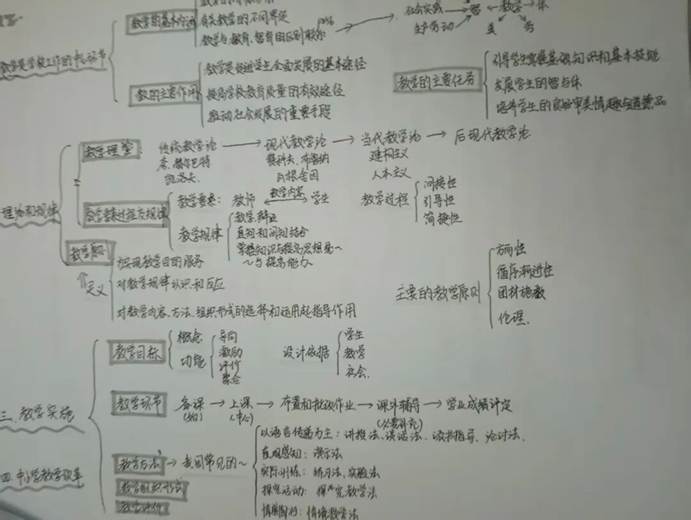 教学的基本内涵
有关教学的不同界定
社会实践
生产劳动
智
教学
体
美
劳
教学是学校工作的中心环节
教学的主要作用
教学是促进学生全面发展的基本途径
提高学校教育质量的有效途径
推动社会发展的重要手段
教学的主要任务
引导学生掌握基础知识和基本技能
发展学生的智与体
培养学生的审美情趣与道德品
理论和规律
教学理论
传统教学论 → 现代教学论 → 当代教学论 → 后现代教学论
赞科夫、布鲁纳
建构主义
瓦根舍因
人本主义
教学要素:
教师
教学内容
学生
教学过程
间接性
引导性
简捷性
教学规律
直接和间接结合
~与提高能力
教学原则
为实现教学目的服务
定义
对教学规律认识和反应
对教学内容、方法、组织形式的选择和运用起指导作用
主要的教学原则
方向性
循序渐进性
因材施教
伦理
三、教学实施
教学目标
概念
功能
导向
激励
评价
聚合
设计依据
学生
教学
社会
教学环节
备课 → 上课 → 布置和批改作业 → 课外辅导 → 学业成绩评定
(中心)
(必要补充)
四、中小学教学改革
教学方法 → 我国常见的~
以语言传递为主: 讲授法、谈话法、读书指导、讨论法、
直观感知: 演示法
实际训练: 练习法、实验法
探究活动: 探究教学法
情感陶冶: 情境教学法
教学组织形式
教学评价